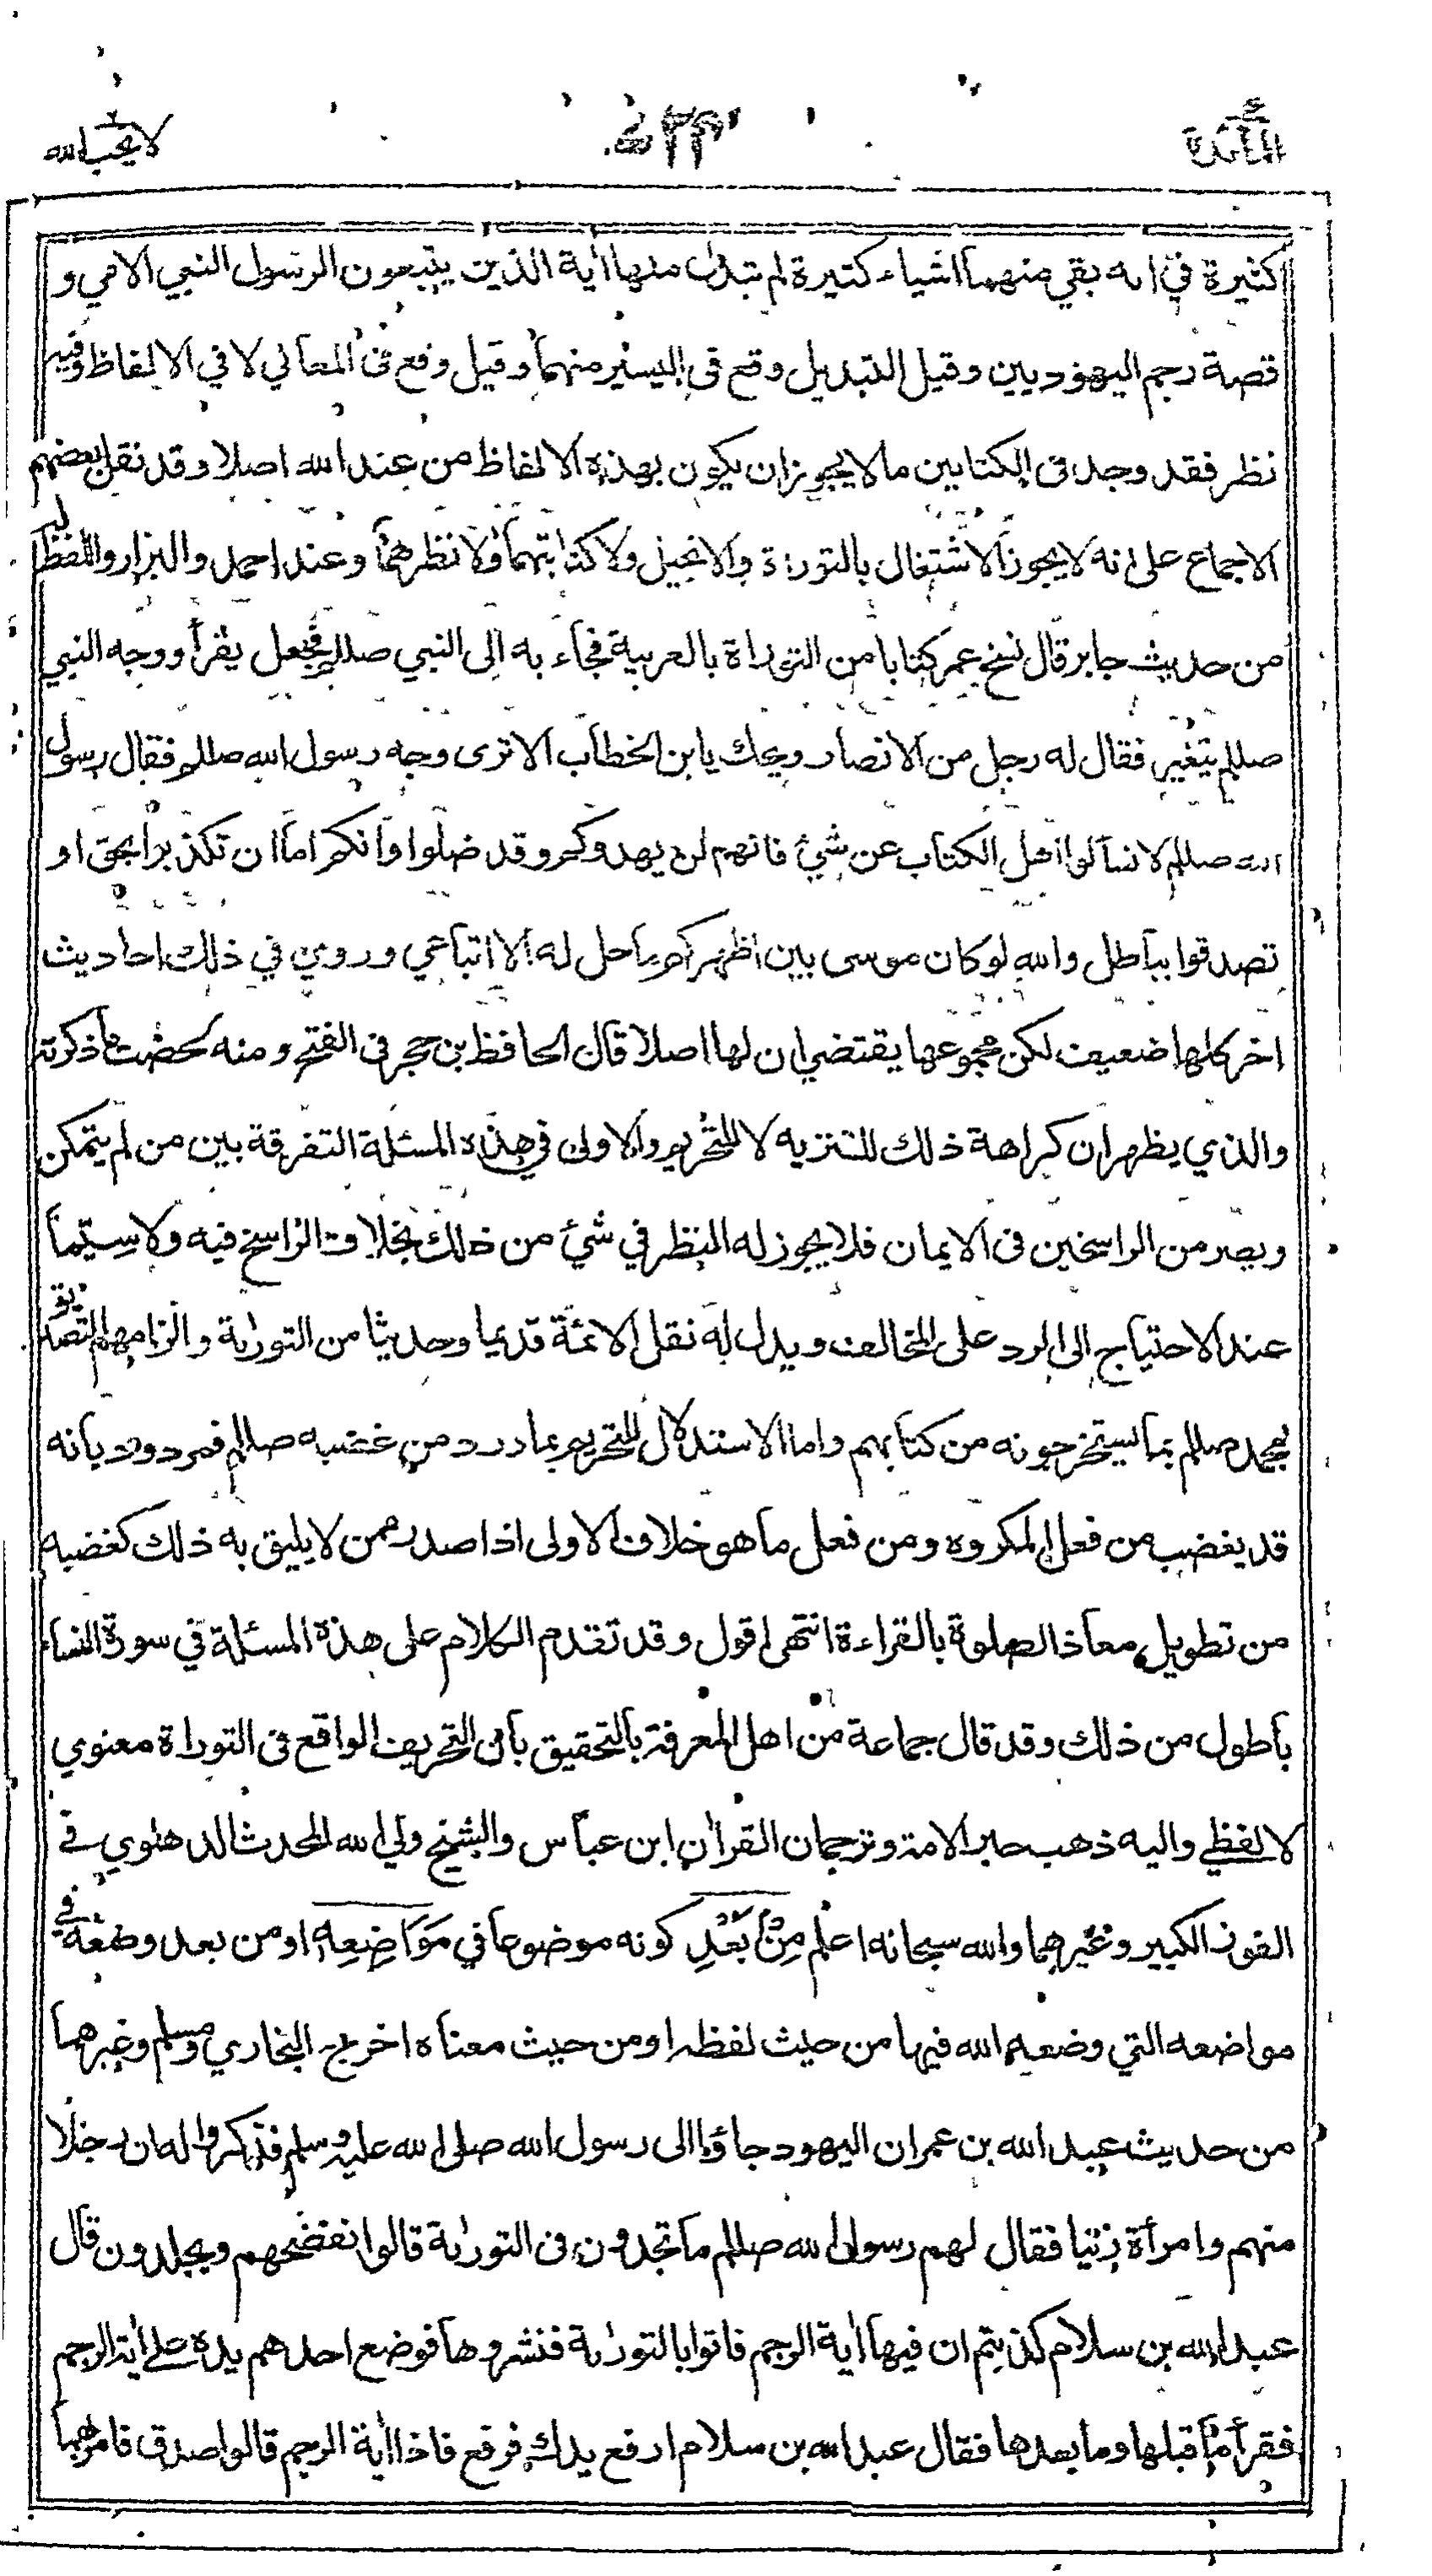 المائدة
لا يحب الله
كثيرة في انه بقي منهما اشياء كثيرة لم تبدل منها اية الذين يتبعون الرسول النبي الامي و
قصة رجم اليهوديين وقيل التبديل وقع في اليسير منهما وقيل وقع في المعاني لا في الالفاظ وفيه
نظر فقد وجد في الكتابين ما لا يجوز ان يكون بهذه الالفاظ من عند الله اصلا وقد نقل بعضهم
الاجماع على انه لا يجوز الاشتغال بالتوراة والانجيل ولا كتابتهما ولا نظرهما وعند احمد والبزار واللفظ له
من حديث جابر قال نسخ عمر كتابا من التوراة بالعربية فجاء به الى النبي صللم فجعل يقرأ ووجه النبي
صللم يتغير فقال له رجل من الانصار ويحك يا ابن الخطاب الا ترى وجه رسول الله صللم فقال رسول
الله صللم لا تسألوا اهل الكتاب عن شيء فانهم لن يهدوكم وقد ضلوا وانكم اما ان تكذبوا بحق او
تصدقوا بباطل والله لو كان موسى بين اظهركم ما حل له الا اتباعي وروي في ذلك احاديث
اخر كلها ضعيف لكن مجموعها يقتضي ان لها اصلا قال الحافظ بن حجر في الفتح ومنه لخصت ما ذكرته
والذي يظهر ان كراهة ذلك للتنزيه لا للتحريم والاولى في هذه المسئلة التفرقة بين من لم يتمكن
ويصر من الراسخين في الايمان فلا يجوز له النظر في شيء من ذلك بخلاف الراسخ فيه ولا سيما
عند الاحتياج الى الرد على المخالف ويدل له نقل الائمة قديما وحديثا من التورٰىة والزامهم التصديق
بمحمد صللم بما يستخرجونه من كتابهم واما الاستدلال للتحريم بما ورد من غضبه صللم فمردود بانه
قد يغضب من فعل المكروه ومن فعل ما هو خلاف الاولى اذا صدر ممن لا يليق به ذلك كغضبه
من تطويل معاذ الصلوة بالقراءة انتهى اقول وقد تقدم الكلام على هذه المسئلة في سورة النساء
بأطول من ذلك وقد قال جماعة من اهل المعرفة بالتحقيق بان التحريف الواقع في التوراة معنوي
لا لفظي واليه ذهب حبر الامة وترجمان القراٰن ابن عباس والشيخ ولي الله المحدث الدهلوي في
الفوز الكبير وغيرهما والله سبحانه اعلم مِنْۢ بَعْدِ كونه موضوعا في مَوَاضِعِهٖ او من بعد وضعه في
مواضعه التي وضعه الله فيها من حيث لفظه او من حيث معناه اخرج البخاري ومسلم وغيرهما
من حديث عبد الله بن عمر ان اليهود جاؤا الى رسول الله صلى الله عليه وسلم فذكروا له ان رجلا
منهم وامرأة زنيا فقال لهم رسول الله صللم ما تجدون في التورٰىة قالوا نفضحهم ويجلدون قال
عبد الله بن سلام كذبتم ان فيها اٰية الرجم فاتوا بالتورٰىة فنشروها فوضع احدهم يده على اية الرجم
فقرأ ما قبلها وما بعدها فقال عبد الله بن سلام ارفع يدك فرفع فاذا اٰية الرجم قالوا صدق فامر بهما